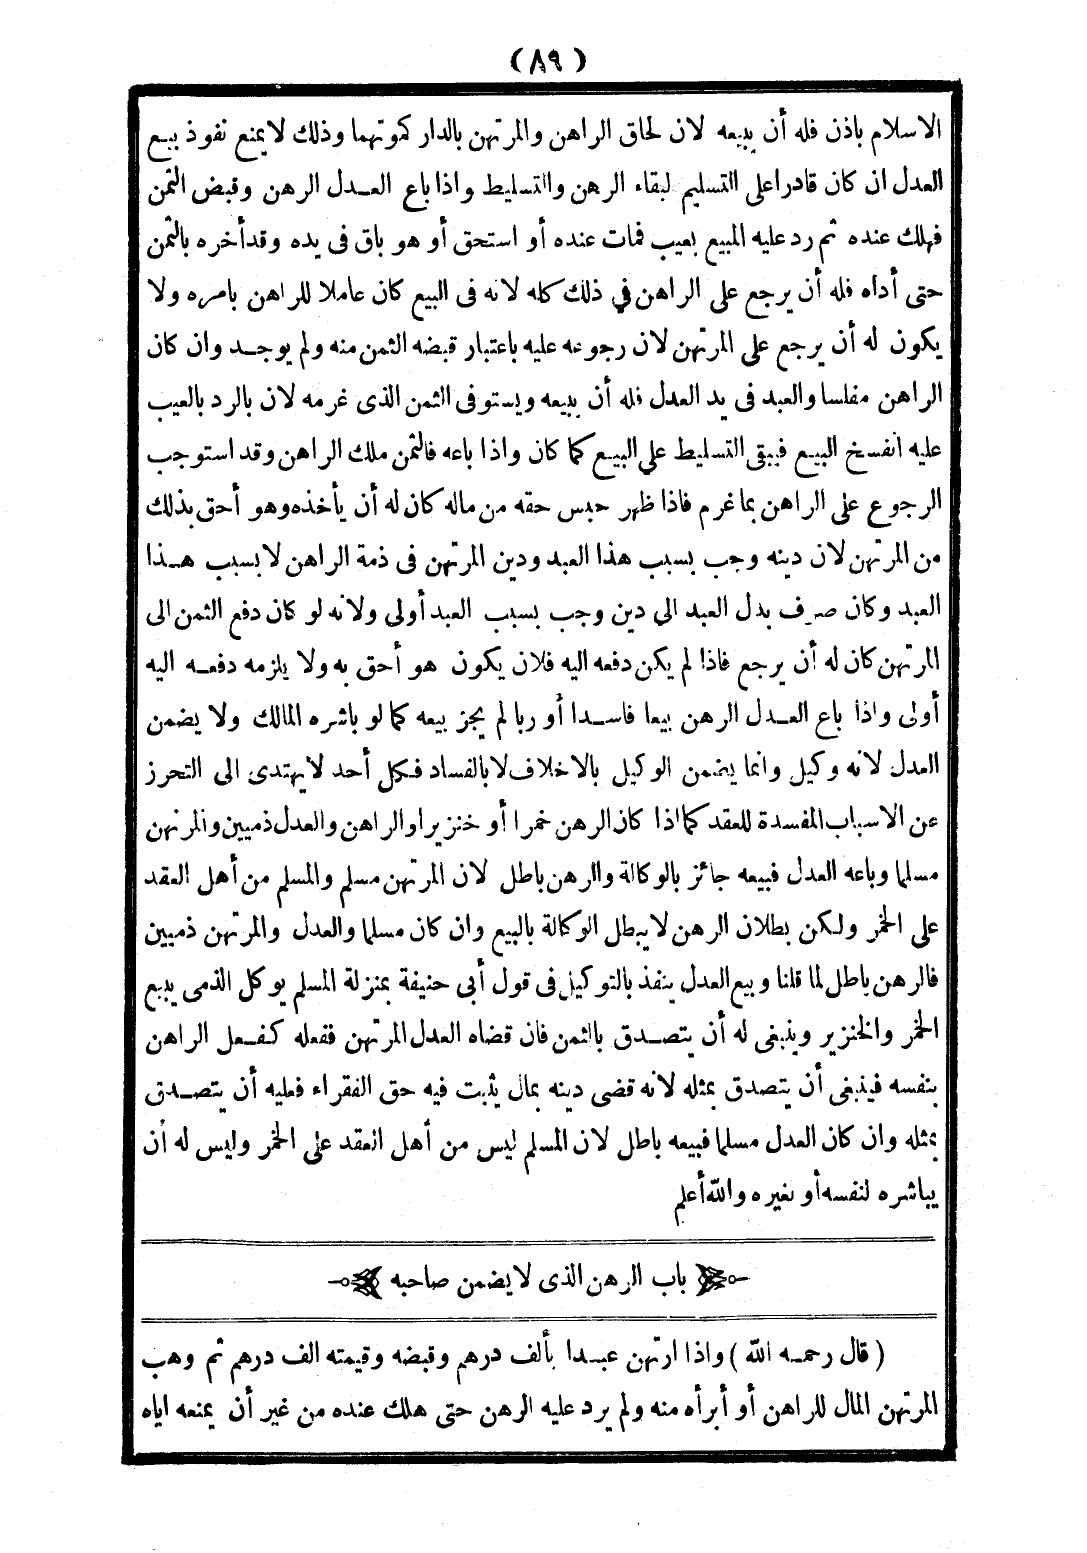 (٨٩)
الاسلام باذن فله أن يبيعه لان لحاق الراهن والمرتهن بالدار كموتهما وذلك لا يمنع نفوذ بيع
العدل ان كان قادرا على التسليم لبقاء الرهن والتسليط واذا باع العـدل الرهن وقبض الثمن
فهلك عنده ثم رد عليه المبيع بعيب فمات عنده أو استحق أو هو باق فى يده وقد أخره بالثمن
حتى أداه فله أن يرجع على الراهن في ذلك كله لانه فى البيع كان عاملا للراهن بامره ولا
يكون له أن يرجع على المرتهن لان رجوعه عليه باعتبار قبضه الثمن منه ولم يوجـد وان كان
الراهن مفلسا والعبد فى يد العدل فله أن يبيعه ويستوفى الثمن الذى غرمه لان بالرد بالعيب
عليه انفسخ البيع فيبقى التسليط علي البيع كما كان واذا باعه فالثمن ملك الراهن وقد استوجب
الرجوع على الراهن بما غرم فاذا ظهر حبس حقه من ماله كان له أن يأخذه وهو أحق بذلك
من المرتهن لان دينه وجب بسبب هذا العبد ودين المرتهن فى ذمة الراهن لا بسبب هـذا
العبد وكان صرف بدل العبد الي دين وجب بسبب العبد أولى ولانه لو كان دفع الثمن الى
المرتهن كان له أن يرجع فاذا لم يكن دفعه اليه فلان يكون هو أحق به ولا يلزمه دفعـه اليه
أولى واذا باع العـدل الرهن بيعا فاسـدا أو ربا لم يجز بيعه كما لو باشره المالك ولا يضمن
العدل لانه وكيل وانما يضمن الوكيل بالاخلاف لا بالفساد فكل أحد لا يهتدى الى التحرز
عن الاسباب المفسدة للعقد كما اذا كان الرهن خمرا أو خنزيرا والراهن والعدل ذميين والمرتهن
مسلما وباعه العدل فبيعه جائز بالوكالة والرهن باطل لان المرتهن مسلم والمسلم من أهل العقد
على الخمر ولكن بطلان الرهن لا يبطل الوكالة بالبيع وان كان مسلما والعدل والمرتهن ذميين
فالرهن باطل لما قلنا وبيع العدل ينفذ بالتوكيل فى قول أبى حنيفة بمنزلة المسلم يوكل الذمى يبيع
الخمر والخنزير وينبغى له أن يتصـدق بالثمن فان قضاه العدل المرتهن ففعله كفـعل الراهن
بنفسه فينبغى أن يتصدق بمثله لانه قضى دينه بمال يثبت فيه حق الفقراء فعليه أن يتصـدق
بمثله وان كان العدل مسلما فبيعه باطل لان المسلم ليس من أهل العقد على الخمر وليس له أن
يباشره لنفسه أو بغيره والله أعلم
باب الرهن الذى لا يضمن صاحبه
( قال رحمـه الله ) واذا ارتهن عبـدا بألف درهم وقبضه وقيمته الف درهم ثم وهب
المرتهن المال للراهن أو أبرأه منه ولم يرد عليه الرهن حتى هلك عنده من غير أن يمنعه اياه